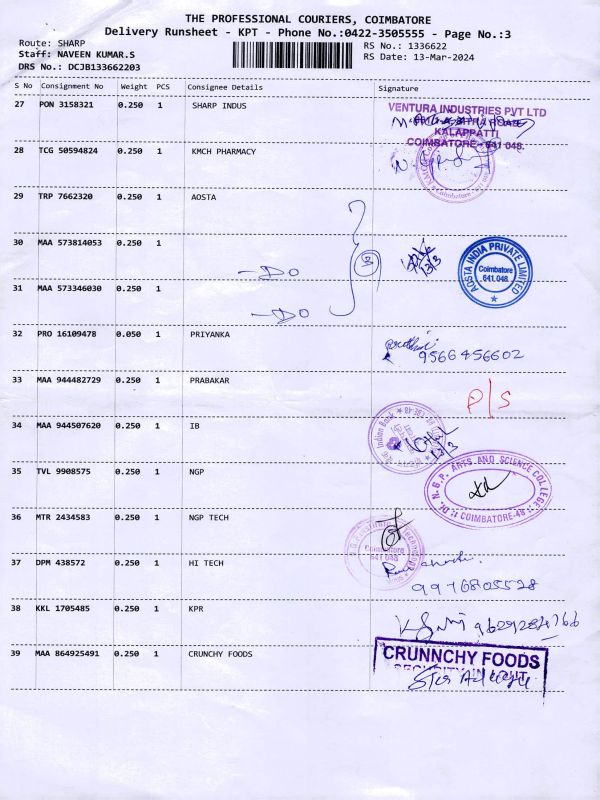 THE PROFESSIONAL COURIERS, COIMBATORE
Delivery Runsheet - KPT - Phone No.:0422-3505555 - Page No.:3
Route: SHARP
RS No.: 1336622
Staff: NAVEEN KUMAR.S
RS Date: 13-Mar-2024
DRS No.: DCJB133662203
S No Consignment No Weight PCS Consignee Details Signature
27 PON 3158321 0.250 1 SHARP INDUS
VENTURA INDUSTRIES PVT LTD
KALAPPATTI
COIMBATORE - 641 048.
28 TCG 50594824 0.250 1 KMCH PHARMACY
Coimbatore
29 TRP 7662320 0.250 1 AOSTA
30 MAA 573814053 0.250 1
-DO
3
13/3
AOSTA INDIA PRIVATE LIMITED
Coimbatore
641.048.
31 MAA 573346030 0.250 1
-DO
32 PRO 16109478 0.050 1 PRIYANKA
9566456602
33 MAA 944482729 0.250 1 PRABAKAR
P/S
34 MAA 944507620 0.250 1 IB
Indian Bank
13/3
35 TVL 9908575 0.250 1 NGP
Dr. N.G.P. ARTS AND SCIENCE COLLEGE
COIMBATORE-48
36 MTR 2434583 0.250 1 NGP TECH
Coimbatore
641 048
37 DPM 438572 0.250 1 HI TECH
9976805528
38 KKL 1705485 0.250 1 KPR
9629284766
39 MAA 864925491 0.250 1 CRUNCHY FOODS
CRUNNCHY FOODS
SECURITY IN OUT